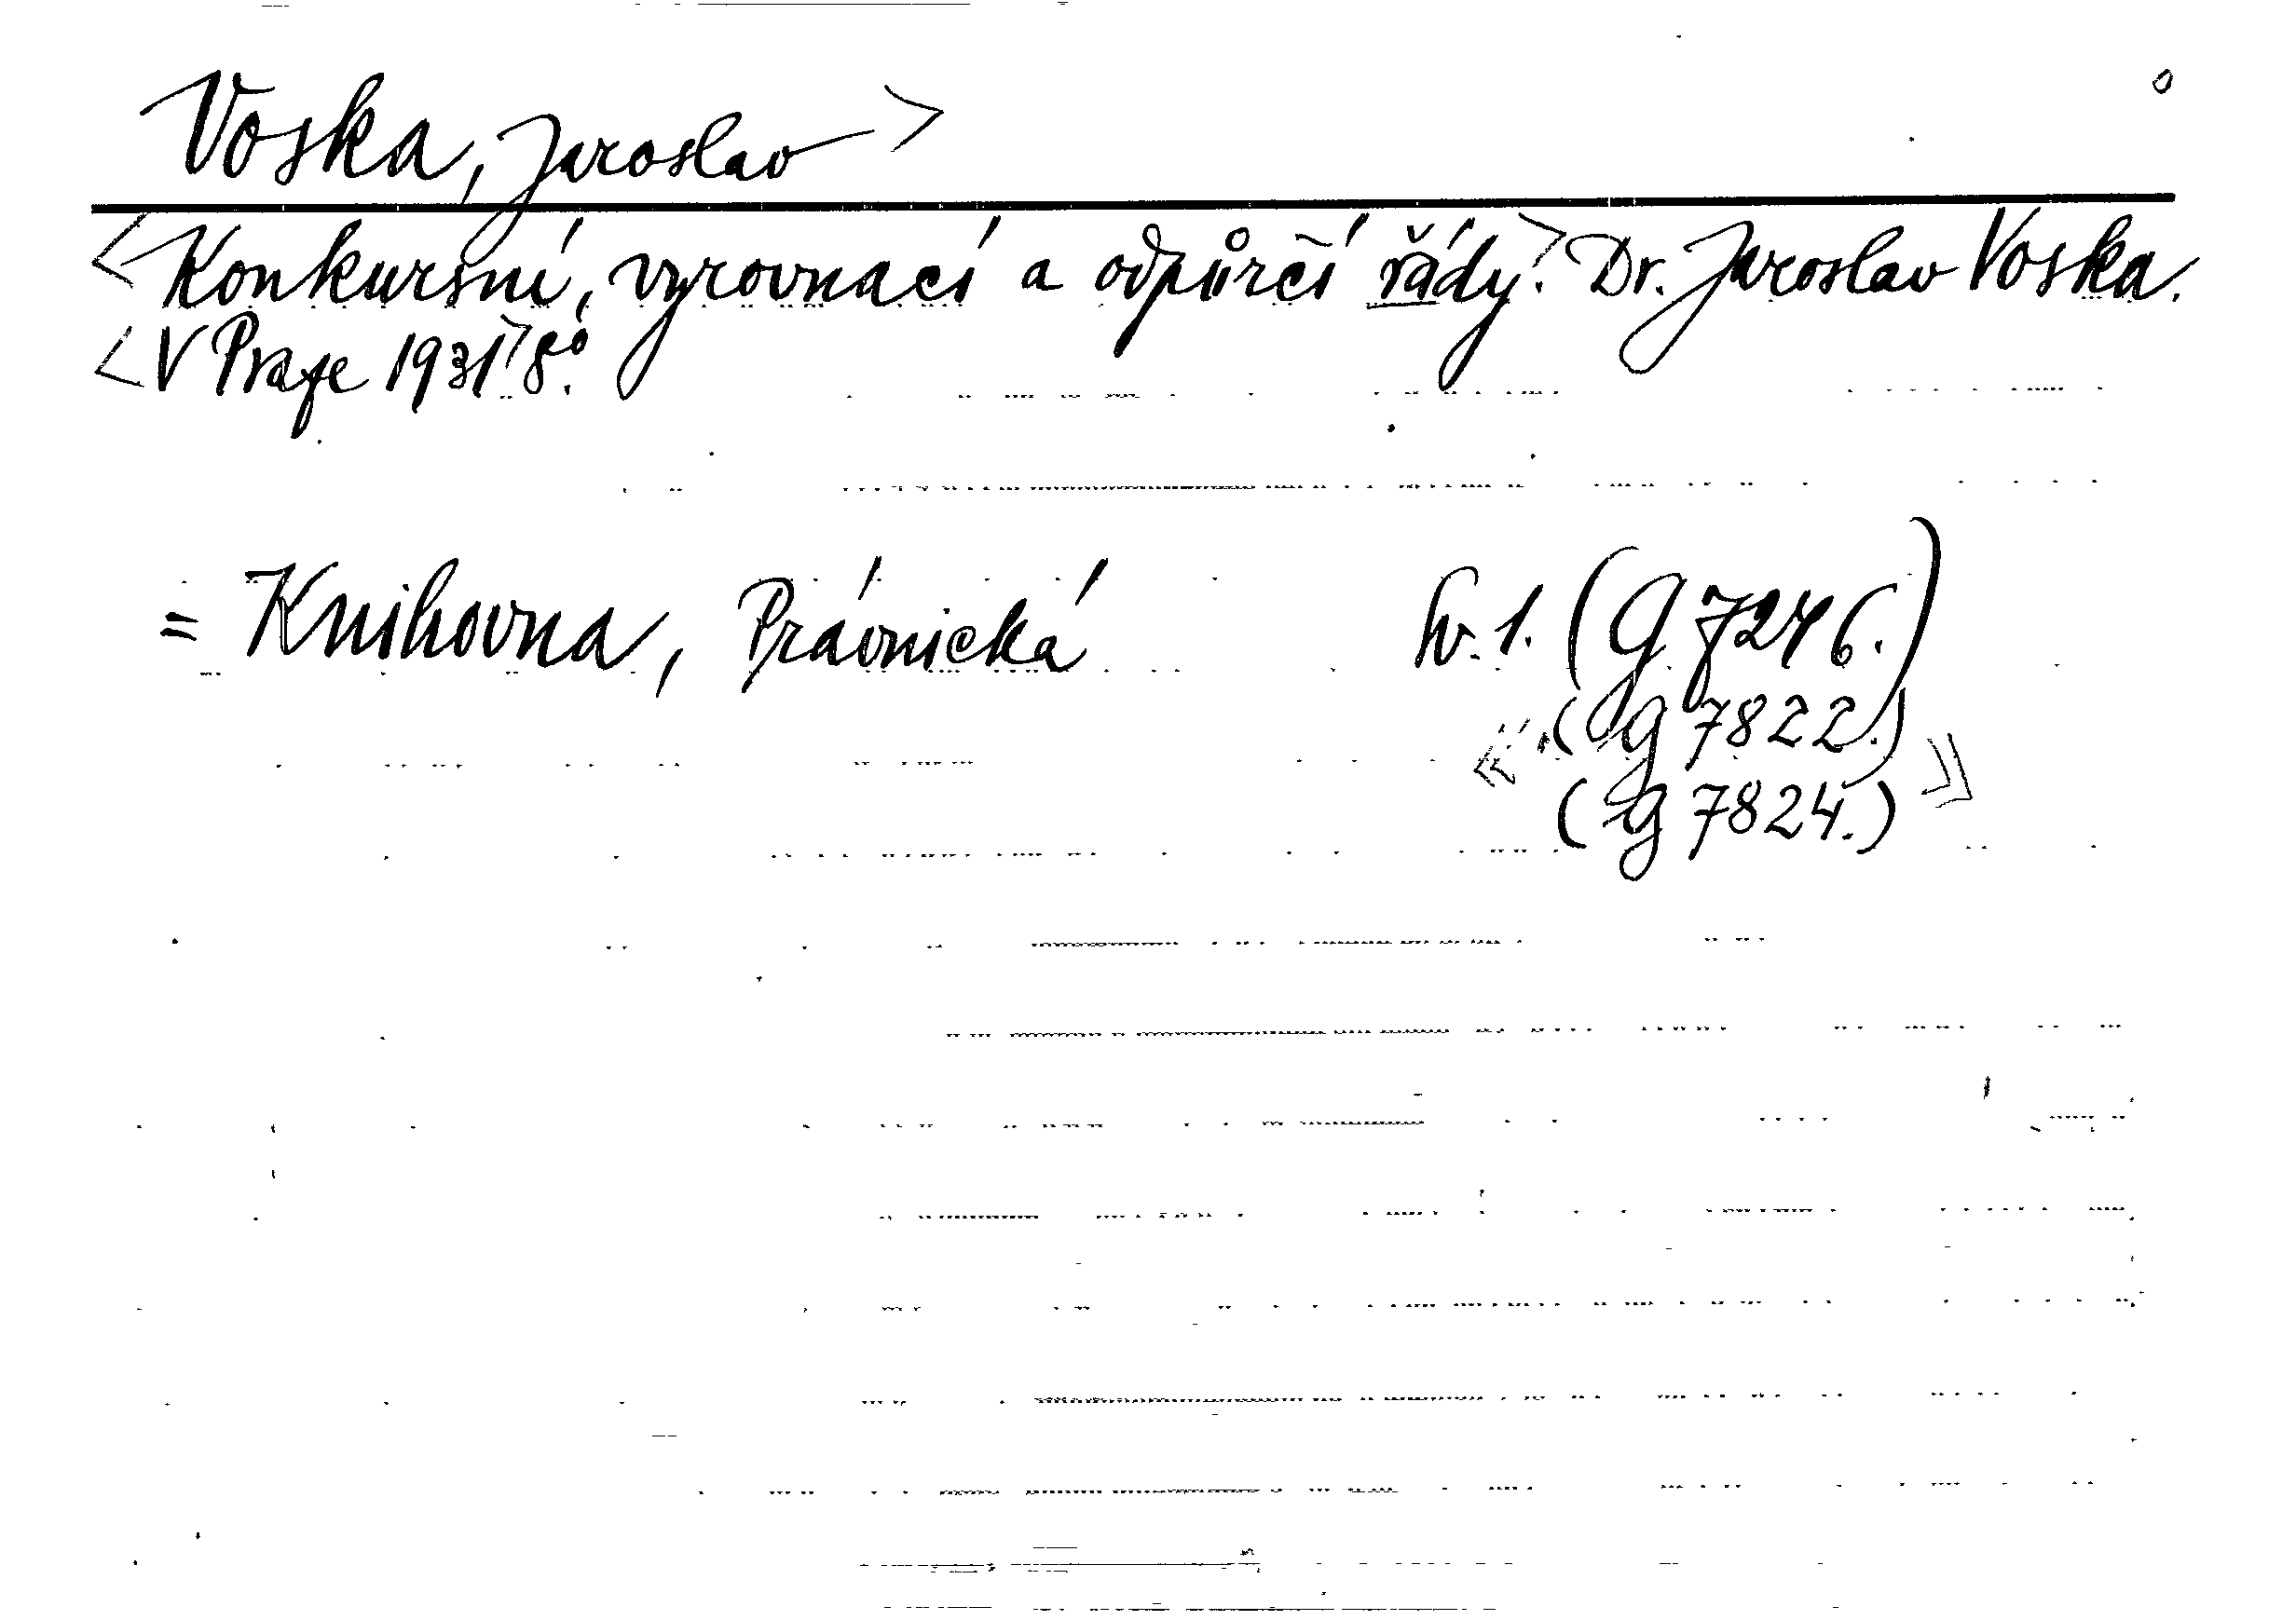 Voska, Jaroslav >
<Konkursní, vyrovnací a odpůrčí řády.> Dr. Jaroslav Voska.
<V Praze 1931> 8°.
= Knihovna, Právnická sv. 1. (G 7246.)
(Jg 7822.)
(Jg 7824.)